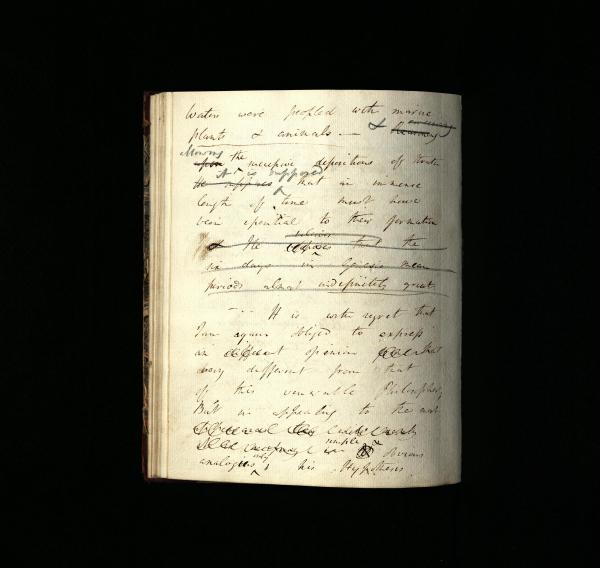 Waters were peopled with marine
plants & animals —
the successive depositions of
it is supposed
that an immense
length of time must have
been essential to their formation
& He that the
six days in Genesis mean
periods almost indefinitely great
It is with regret that
I am again obliged to express
an opinion that
very different from that
of this venerable Philosopher,
But in appealing to the most
simple obvious
analogies only, his Hypothesis